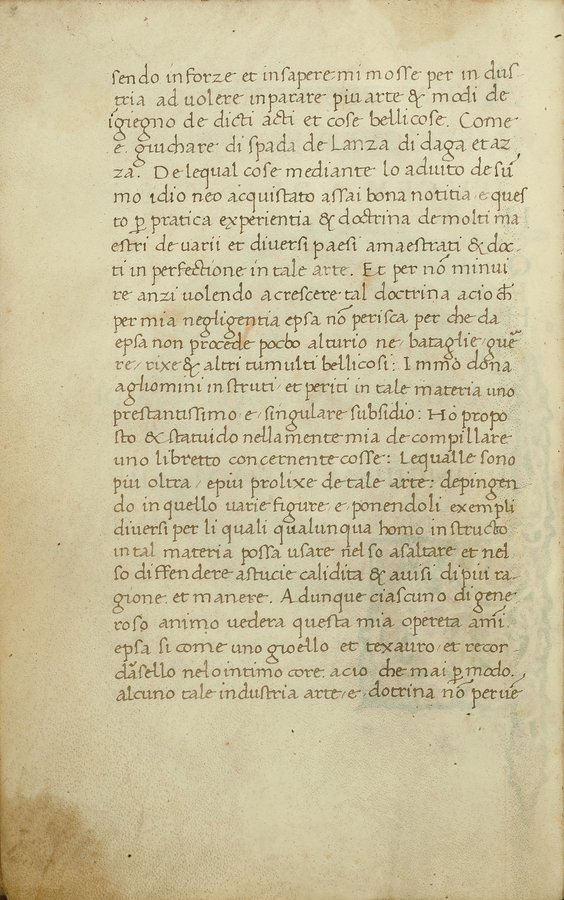 sendo in forze et in sapere mi mosse per in dus-
tria ad volere inparare piu arte & modi de
igiegno de dicti acti et cose bellicose. Come
e. giuchare di spada de Lanza di daga et az-
za. De le qual cose mediante lo adiuto de su͂
mo idio neo acquistato assai bona notitia e ques
to p̱ pratica experientia & doctrina de molti ma
estri de varii et diversi paesi amaestrati & doc-
ti in perfectione in tale arte. Et per nō minui
re anzi volendo acrescere tal doctrina acio ch̄
per mia negligentia epsa nō perisca per che da
epsa non procede pocho alturio ne / bataglie / gue͂
re / rixe & altri tumulti bellicosi: Immo dona
agliomini instruti / et periti in tale materia uno
prestantissimo / e / singulare subsidio: Ho propo
sto & statuido nella mente mia de compillare
uno libretto concernente cosse: Le qualle sono
piu oltra / e piu prolixe de tale arte: depingen
do in quello varie figure / e / ponendoli exempli
diversi per li quali qualunqua homo instructo
in tal materia possa usare nel so asaltare et nel
so diffendere astucie calidita & avisi di piu ra-
gione et manere. Adunque ciascuno di gene
roso animo vedera questa mia opereta ami
epsa si come uno gioello et texauro / et recor-
dasello nelo intimo core acio che mai p̱ modo
alcuno tale industria arte / e / dotrina nō perve͂